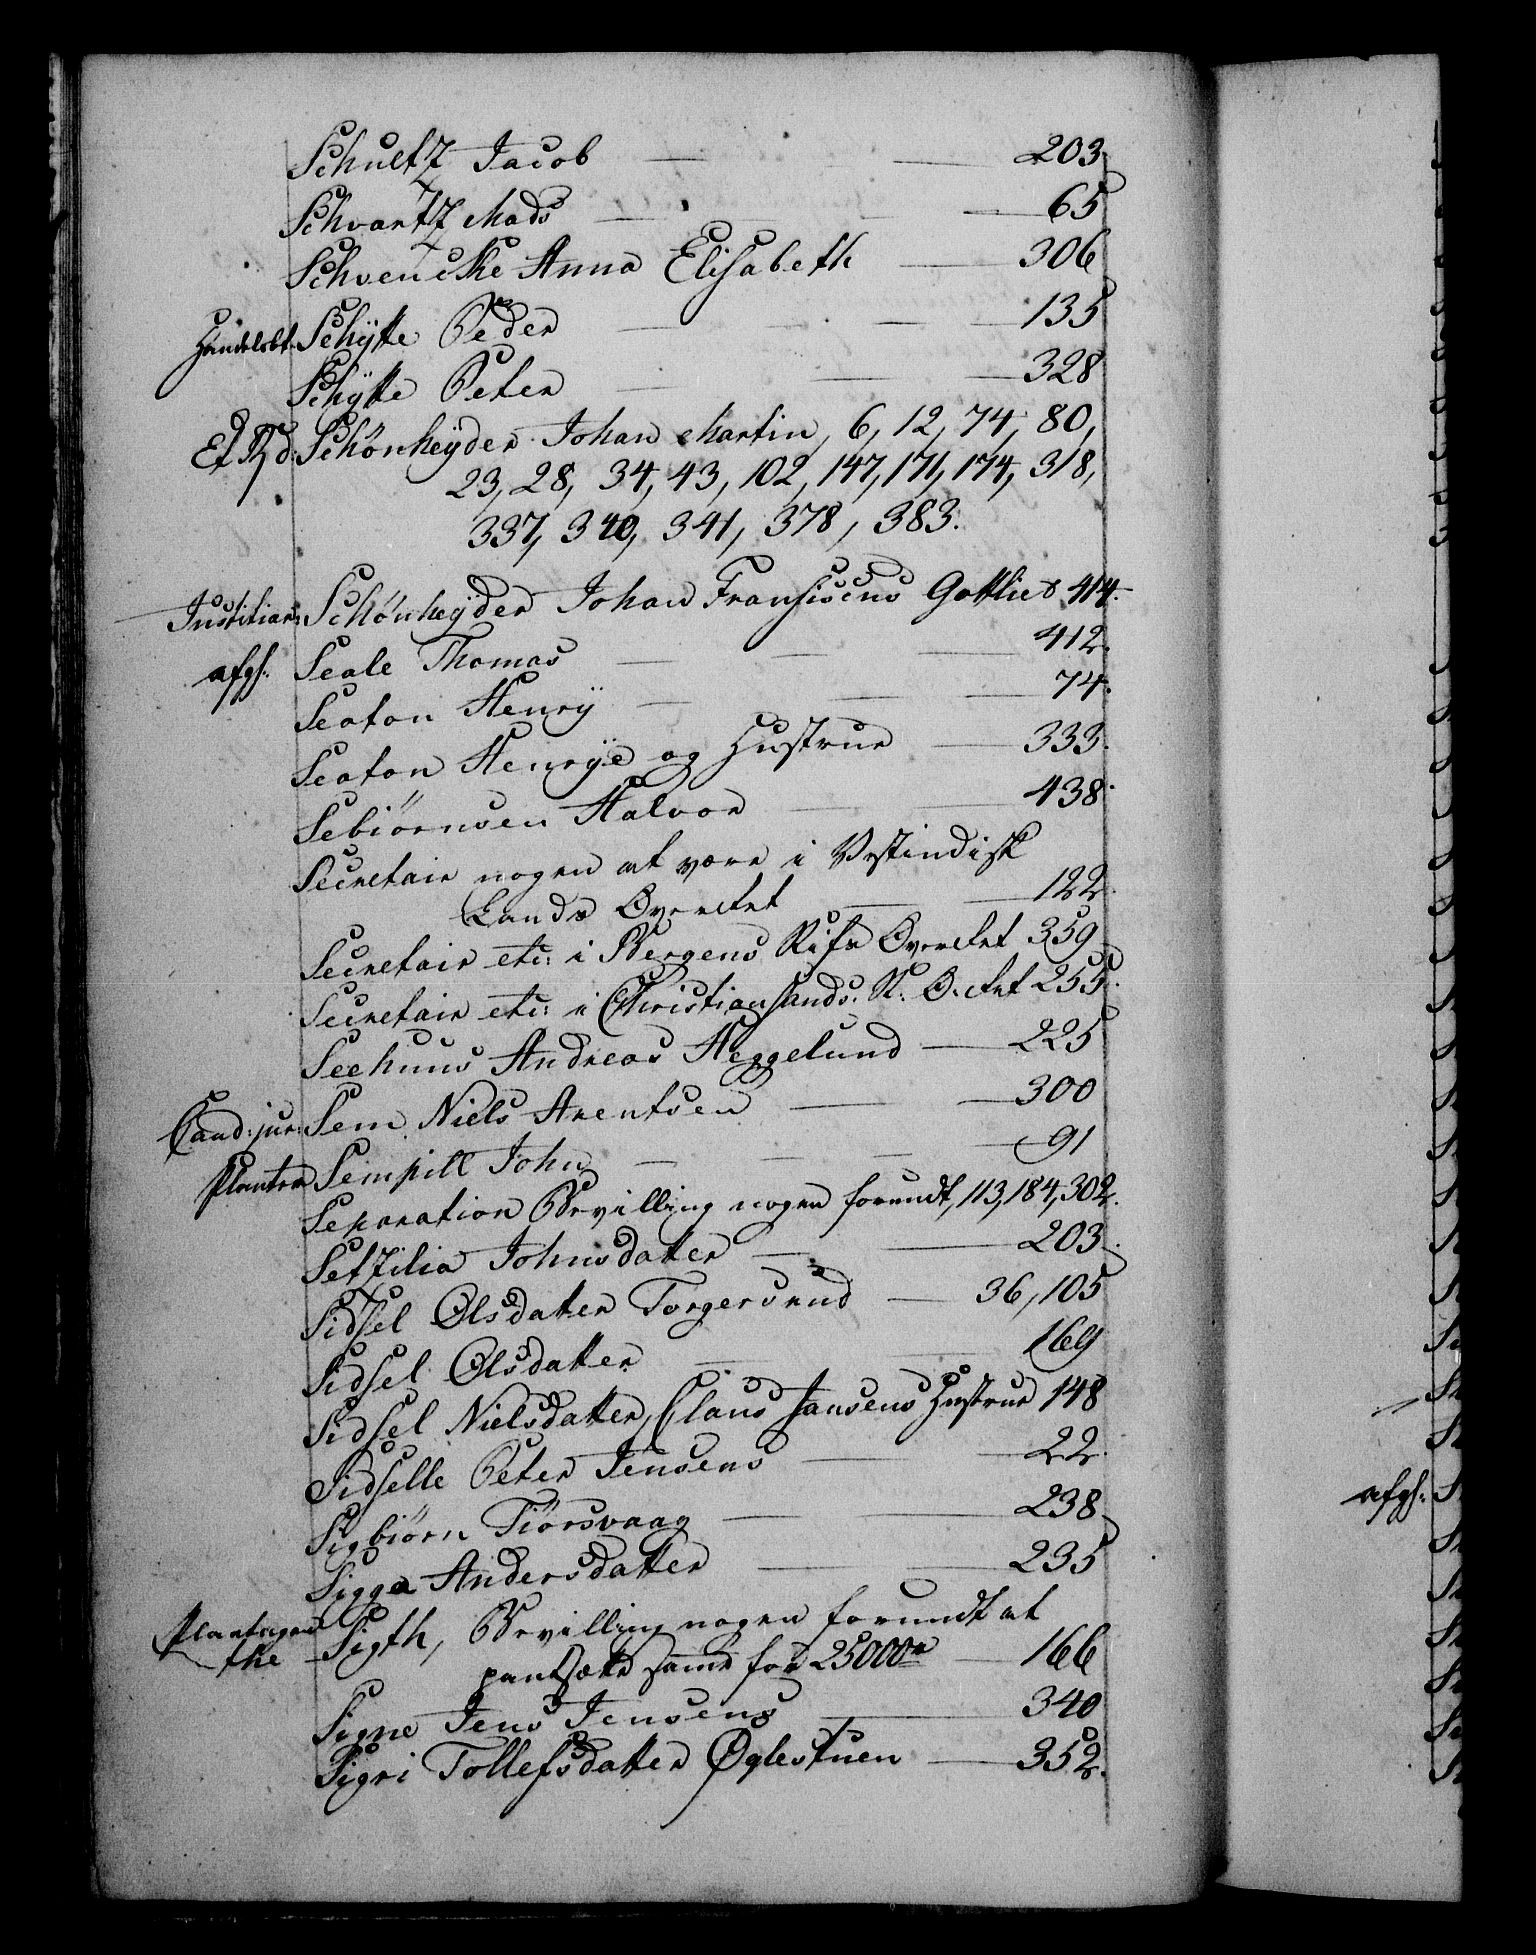 Schultz Jacob — 203.
Schvartz Mads — 65
Schvencke Anna Elisabeth — 306
Handelsbt. Schÿtte Peder — 135
Schÿtte Peter — 328
Schønheÿder Johan Martin, 6, 12, 74, 80,
23, 28, 34, 43, 102, 147, 171, 174, 318,
337, 340, 341, 378, 383.
Justitiar: Schønheÿder Johan Fransiscus Gottlieb 414.
afgl: Seale Thomas — 412.
Seaton Henrÿ — 74.
Seaton Henrÿe og Hustrue — 333.
Sebiørnsen Halvor — 438.
Secretair nogen at være i Vestindisk
Lands Overretet — 122.
Secretair etc: i Bergens Stifts Overretet 359
Secretair etc: i Christiansands. St. O. retet 255.
Seehuus Andreas Heggelund — 225
Cand: jur: Sem Niels Arentsen — 300
Planter Sempill John — 91
Separation Bevilling nogen forundt, 113, 184, 302.
Setzilia Johnsdatter — 203.
Sidsel Olsdatter Torgersrud — 36, 105
Sidsel Olsdatter — 169
Sidsel Nielsdatter, Claus Jansens Hustrue 148
Sidselle Peter Jensens — 22.
Sigbiørn Tiørsvaag — 238.
Sigga Andersdatter — 235
the Sigth, Bevilling nogen forundt at
pantsætte samme for 25000 — 166
Signe Jens Jensens — 340
Sigri Tollefsdatter Øglestuen — 352.
afgl: